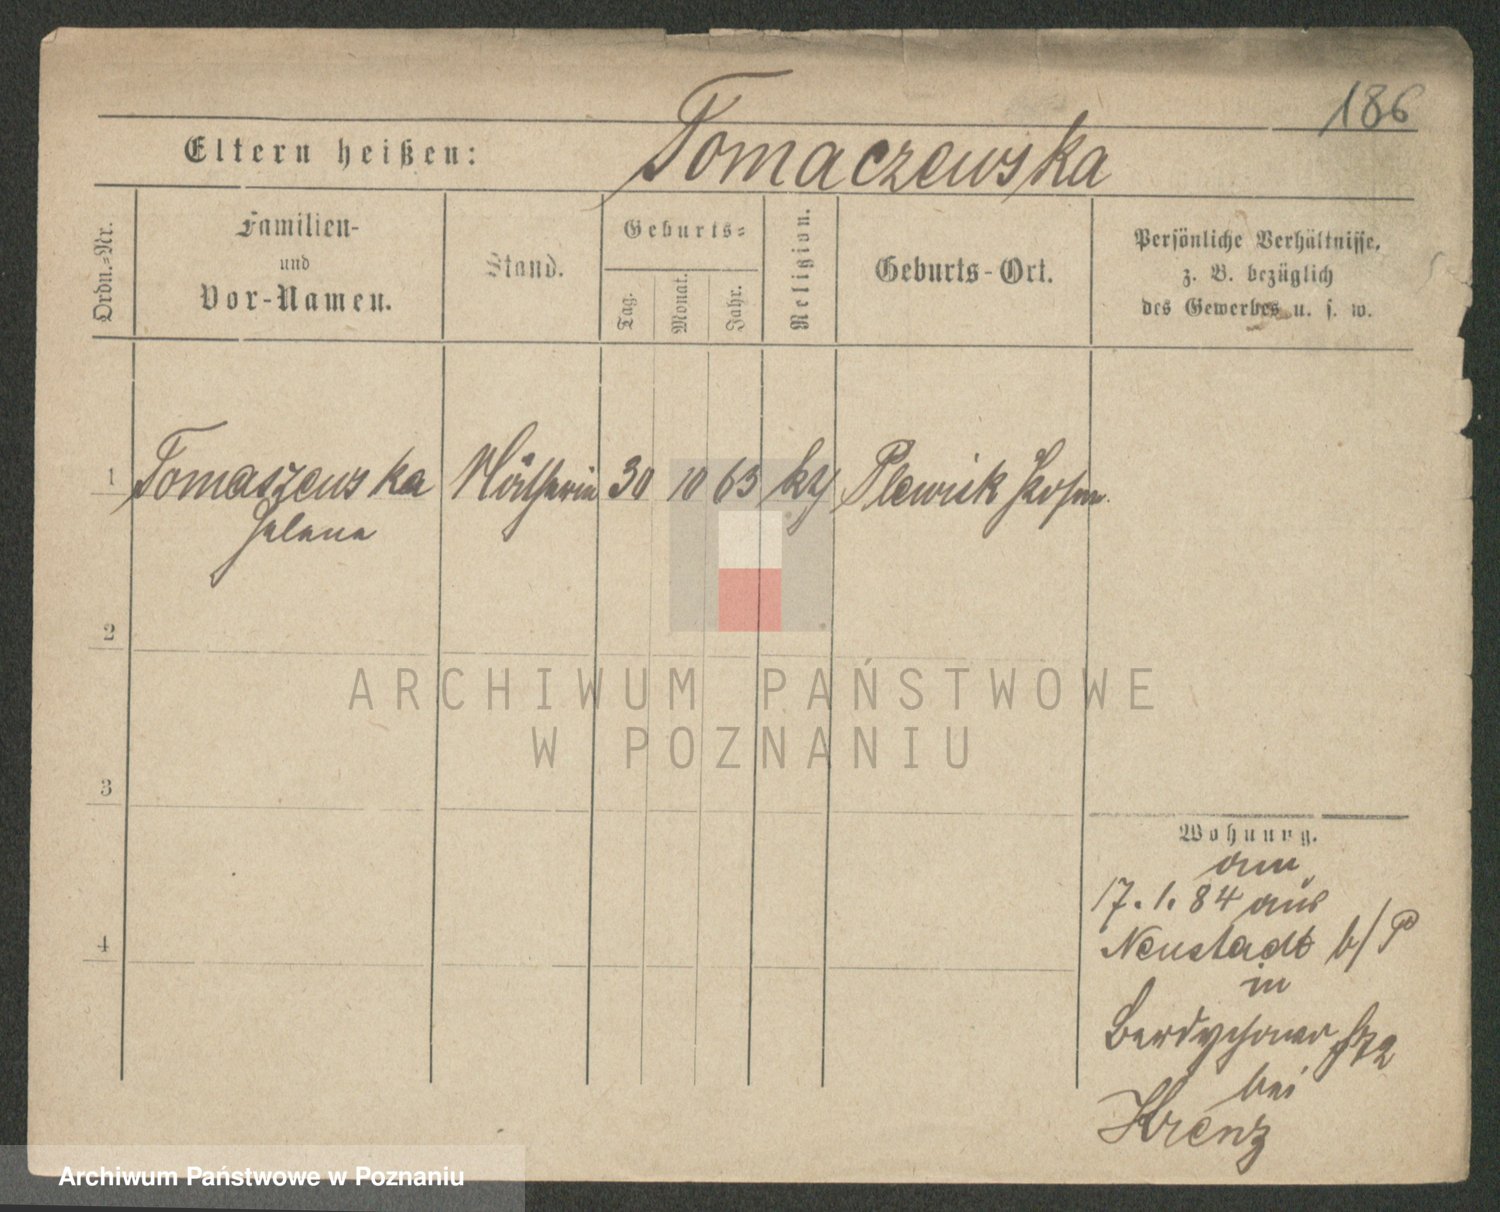 186
Eltern heißen: Tomaczewska
Ordn.-Nr.
Familien-
und
Vor-Namen.
Stand.
Geburts-
Tag.
Monat.
Jahr.
Religion.
Geburts-Ort.
Persönliche Verhältnisse,
z. B. bezüglich
des Gewerbes u. s. w.
1 Tomaszewska 30 10 63 Plewisk
Helena
2
ARCHIWUM PAŃSTWOWE
W POZNANIU
3
Wohnung.
am
17. 1. 84 aus
4
Neustadt b/P
in
bei
Krenz
Archiwum Państwowe w Poznaniu